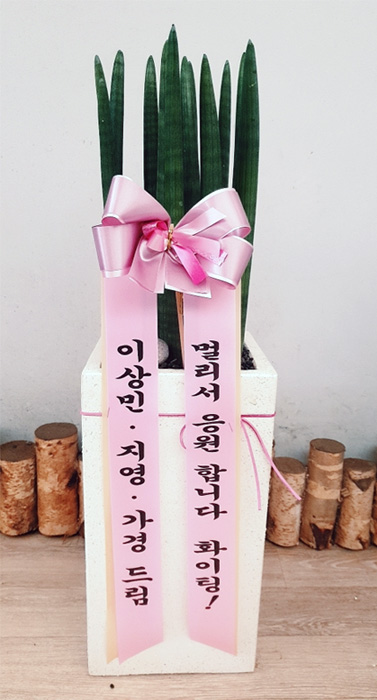 이상민·지영·가경 드림
멀리서 응원 합니다 화이팅!